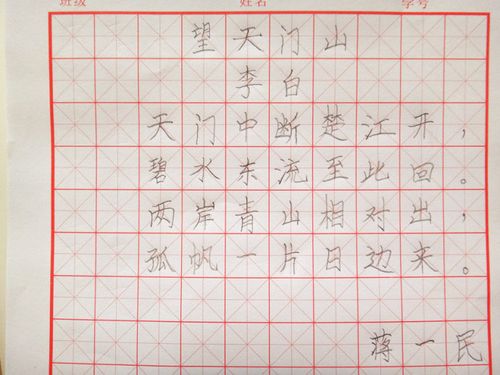 班级 姓名 学号
望天门山
李白
天门中断楚江开，
碧水东流至此回。
两岸青山相对出，
孤帆一片日边来。
蒋一民